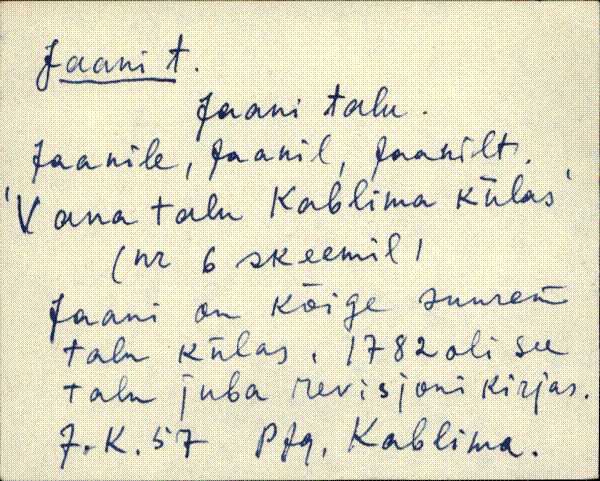 Jaani t.
Jaani talu.
Jaanile, Jaanil, Jaanilt.
'Vana talu Kablima külas'
(nr 6 skeemil)
Jaani on kõige suurem
talu külas. 1782 oli see
talu juba revisjoni kirjas.
J.K. 57 Pfg. Kablima.